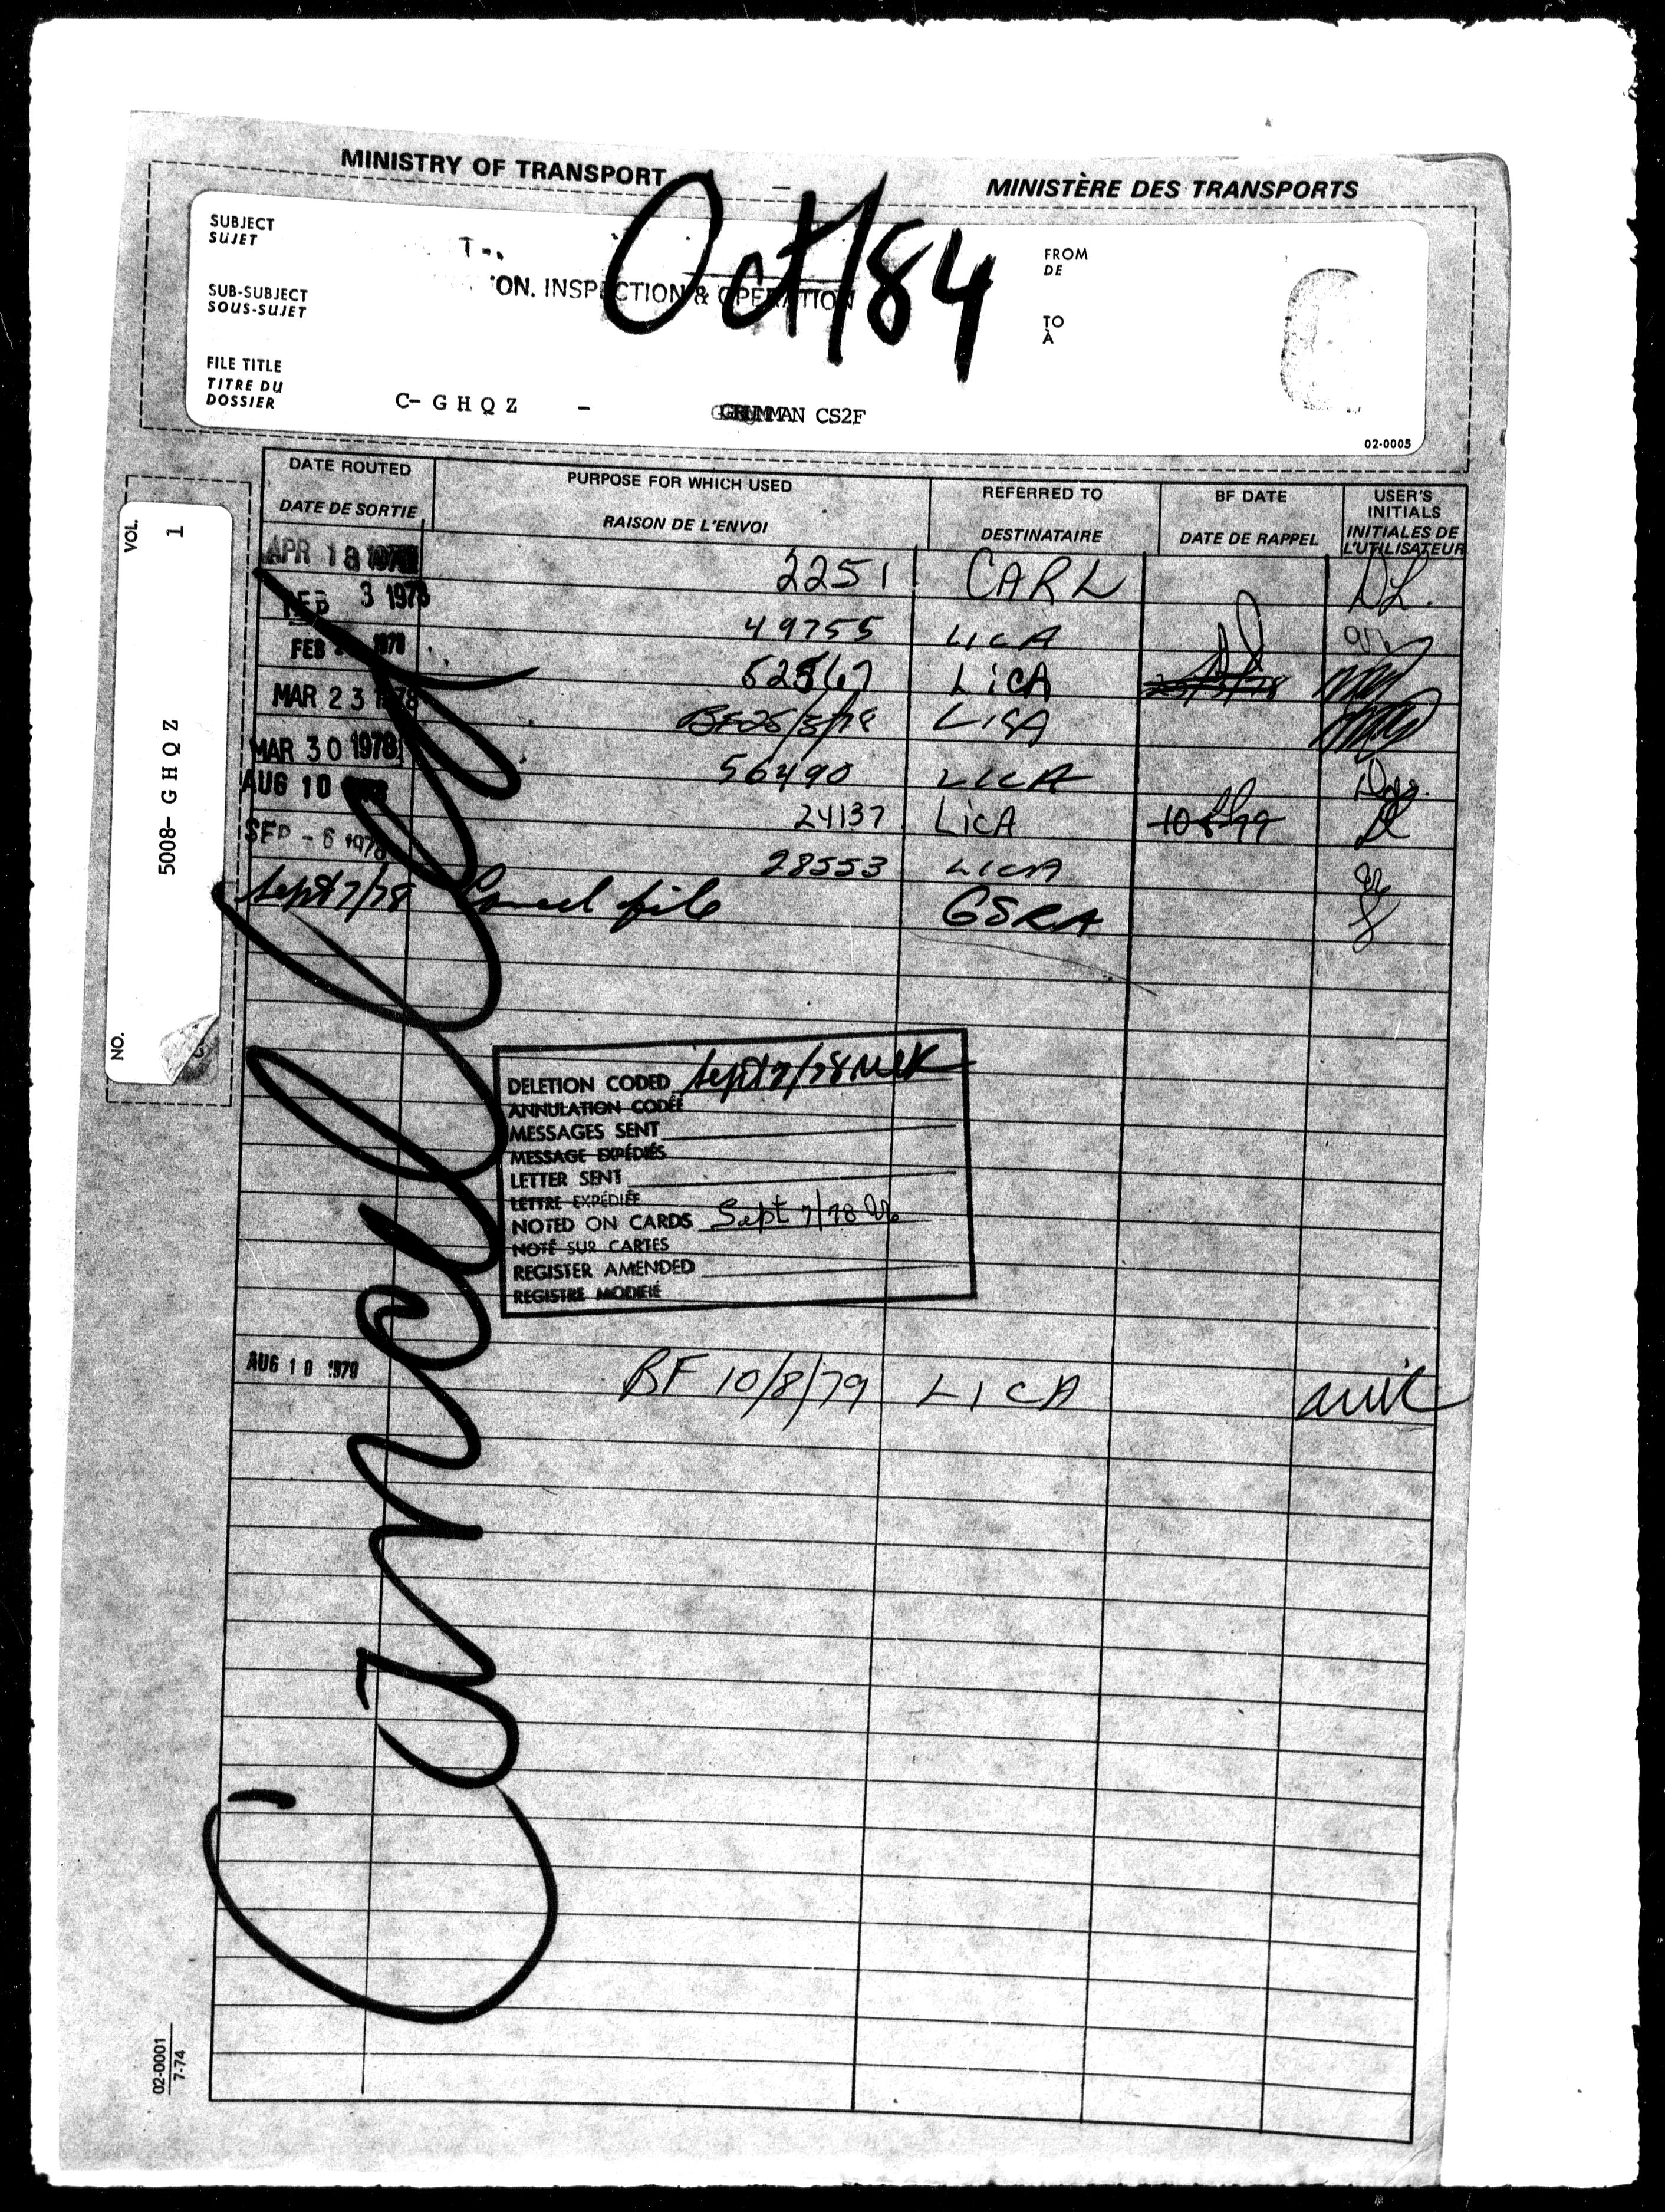 MINISTRY OF TRANSPORT - MINISTÈRE DES TRANSPORTS
Oct/84
SUBJECT
SUJET
SUB-SUBJECT
SOUS-SUJET
ON. INSPECTION & OPERATION
FILE TITLE
TITRE DU
DOSSIER
C- G H Q Z - GRUMMAN CS2F
FROM
DE
TO
À
02-0005
VOL. 1
5008- G H Q Z
NO.
DATE ROUTED
DATE DE SORTIE
PURPOSE FOR WHICH USED
RAISON DE L'ENVOI
REFERRED TO
DESTINATAIRE
BF DATE
DATE DE RAPPEL
USER'S
INITIALS
INITIALES DE
L'UTILISATEUR
APR 18 2251 CARL DL.
FEB 3 1978 49755 LICA
FEB 1978 52567 LICA
MAR 23 1978 BF25/3/78 LICA
MAR 30 1978 56490 LICA
AUG 10 24137 LICA
SEP - 6 1978 28553 LICA
Sept 7/78 Cancel file GSRA
Cancelled
DELETION CODED Sept 7/78 MK
ANNULATION CODÉE
MESSAGES SENT
MESSAGE EXPÉDIÉS
LETTER SENT
LETTRE EXPÉDIÉE
NOTED ON CARDS Sept 7/78
NOTÉ SUR CARTES
REGISTER AMENDED
REGISTRE MODIFIÉ
AUG 10 1979 BF 10/8/79 LICA
02-0001
7-74